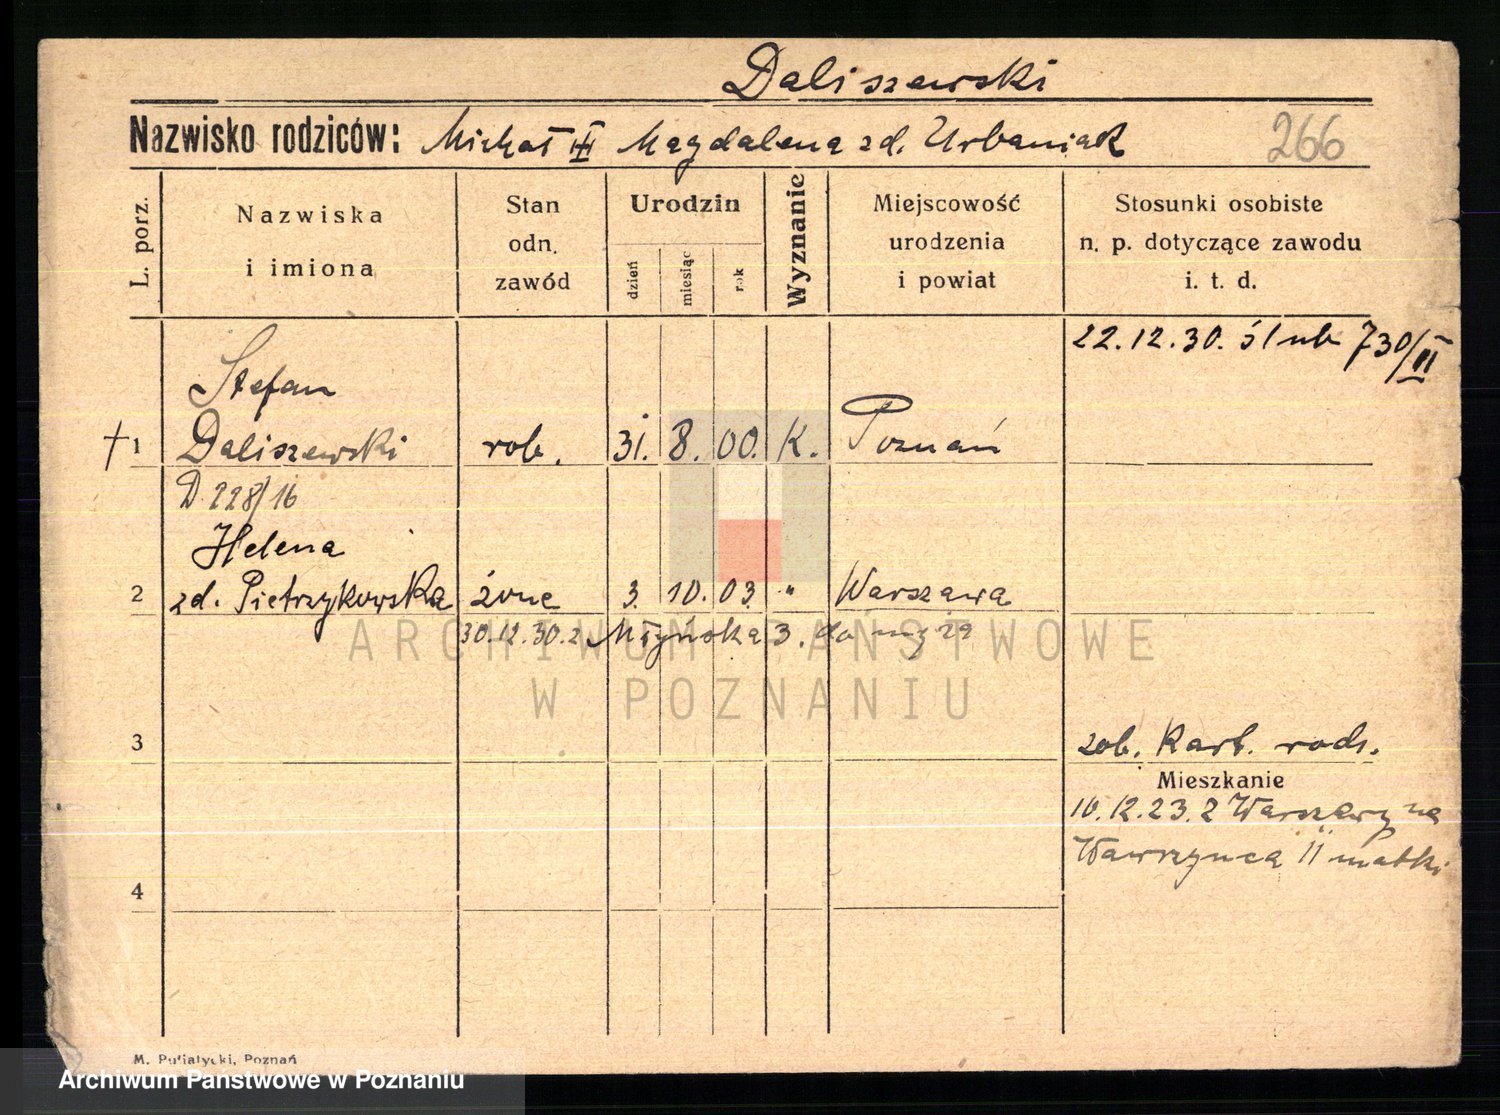 Daliszewski
Nazwisko rodziców: Michał III Magdalena zd. Urbaniak 266
L. porz.
Nazwiska
i imiona
Stan
odn.
zawód
Urodzin
dzień
miesiąc
rok
Wyznanie
Miejscowość
urodzenia
i powiat
Stosunki osobiste
n. p. dotyczące zawodu
i. t. d.
22.12.30. ślub 730/II
Stefan
† 1 Daliszewski rob. 31. 8. 00. K. Poznań
D 228/16
Helena
2 zd. Pietrzykowska żona 3. 10. 03. " Warszawa
30.12.30. z Młyńska 3. do
ARCHIWUM PAŃSTWOWE
W POZNANIU
3 zob. Kart. rodz.
Mieszkanie
10.12.23. z Warszawy na
Wawrzyńca 11 matki
4
M. Putiatycki, Poznań
Archiwum Państwowe w Poznaniu